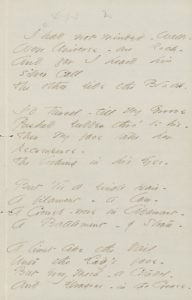 I had not minded – Walls –
Were Universe – one Rock –
And far I heard his
silver Call
The other side the Block –
I'd tunnel – till my Groove
Pushed sudden thro' to his –
Then my face take her
Recompense –
The looking in his Eyes –
But 'tis a single Hair –
A filament – a law –
A Cobweb – wove in Adamant –
A Battlement – of Straw –
A limit like the Veil
Unto the Lady's face –
But every Mesh – a Citadel –
And Dragons – in the Crease –